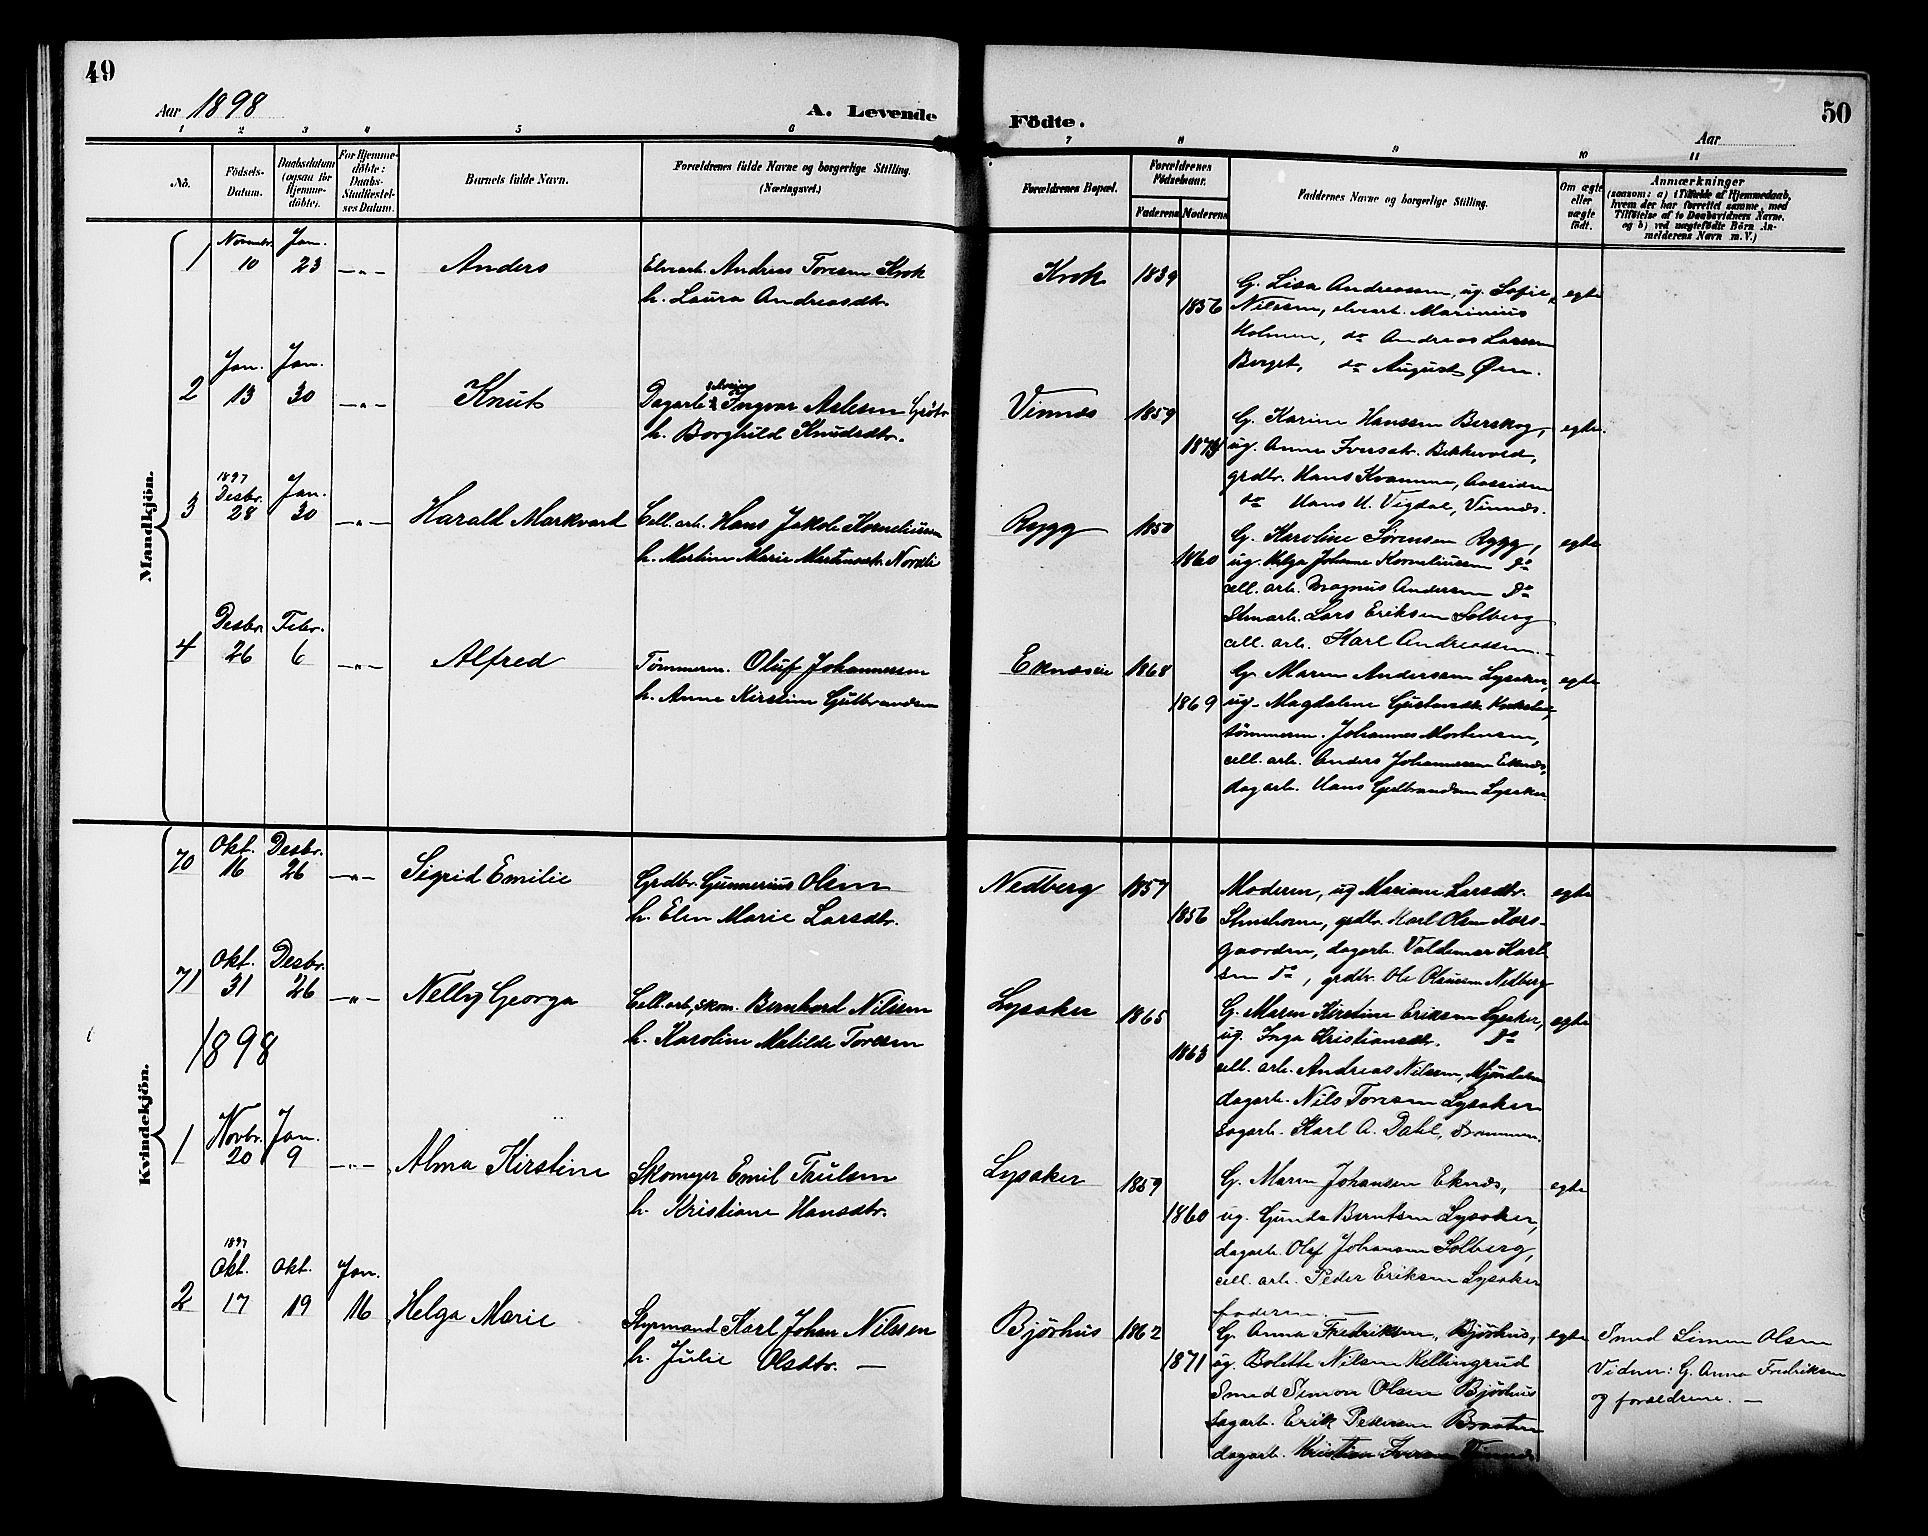 49
Aar 1898
A. Levende
Födte.
50
Aar
1 2 3 4 5 6 7 8 9 10 11
No.
Födsels-Datum.
Daabsdatum (ogsaa for Hjemme-döbte).
For Hjemme-döbte: Daabs-Stadfæstel-ses Datum.
Barnets fulde Navn.
Forældrenes fulde Navne og borgerlige Stilling. (Næringsvei.)
Forældrenes Bopæl.
Forældrenes Födselsaar.
Faderens
Moderens
Faddernes Navne og borgerlige Stilling.
Om ægte eller uægte födt.
Anmærkninger
(saasom: a) i Tilfælde af Hjemmedaab, hvem der har forrettet samme, med Tilföielse af to Daabsvidners Navne. og b) ved uægtefödte Börn An-melderens Navn m. V.)
Mandkjön.
1 Novmbr. 10 Jan. 23 — " — Anders
Elvearb. Andreas Toresen Krok
h. Laura Andreasdtr.
Krok 1839 1856
G. Lisa Andreassen, ug. Sofie
Nilssen, elvearb. Marinius
Holmen, do Andreas Larsen
Berget, do August Øren.
egte
2 Jan. 13 Jan. 30 — " — Knut
Dagarb. Ingvar Aslesen
h. Borghild Knudsdtr.
Vinnæs 1859
G. Karine Hanssen Berskog,
ug. Anne Iversdtr. Bekkevold,
grdbr. Hans Kvamme, Aasiden
do Hans H. Vigdal, Vinnæs.
egte.
3 1897 Desbr. 28 Jan. 30 — " — Harald Markvard
Cell. arb. Hans Jakob Korneliussen
h. Martine Marie Martinsdtr. Nordli
Rygg 1850 1860
G. Karoline Sørensen Rygg,
ug. Helga Johanne Korneliussen do
cell. arb. Magnus Andersen do
Stenarb. Lars Eriksen Solberg
cell. arb. Karl Andreassen. —
egte
4 Desbr. 26 Febr. 6 — " — Alfred
Tømmerm. Oluf Johannessen
h. Anne Kirstine Gulbrandsen
Eknæseie 1868 1869
G. Maren Andersen Lysaker,
ug. Magdalene Gustavsdtr.
tømmerm. Johannes Mortensen,
cell. arb. Anders Johannessen Eknæs,
dagarb. Hans Gulbrandsen Lysaker.
egte
Kvindekjön.
70 Okt. 16 Desbr. 26 — " — Sigrid Emilie
Grdbr. Gunnerius Olsen
h. Elen Marie Larsdtr.
Nedberg 1857 1856
Moderen, ug Mariane Larsdtr.
grdbr. Karl Olsen Kors-
gaarden, dagarb. Valdemar Karl
sen do, grdbr. Ole Olaussen Nedberg
egte
71 Okt. 31 Desbr. 26 — " — Nelly Georga
Cell. arb., skom. Bernhard Nilssen
h. Karoline Matilde Toresen
Lysaker 1865 1863
G. Maren Kirstine Eriksen Lysaker,
ug. Inga Kristiansdtr. do
cell. arb. Andreas Nilssen, Mjøndalen
dagarb. Nils Toresen Lysaker
sagarb. Karl A. Dahl, Drammen.
egte
1898
1 Novbr. 20 Jan. 9 — " — Alma Kirstine
Skomager Emil Trulsen
h. Kristiane Hansdtr.
Lysaker 1859 1860
G. Maren Johansen Eknæs,
ug. Gunda Berntsen Lysaker,
dagarb. Olaf Johansen Solberg,
cell. arb. Peder Eriksen Lysaker
faderen. —
egte
2 1897 Okt. 17 Okt. 19 Jan. 16 Helga Marie
Styrmand Karl Johan Nilssen
h. Julie Olsdtr. —
Bjørhus 1862 1871
G. Anna Fredriksen, Bjørhus,
ug. Bolette Nilsen Kellingrud
Smed Simon Olsen Bjørhus
sagarb. Erik Pedersen Braaten
dagarb. Kristian Iversen Vinnæs.
egte
Smed Simon Olsen
Vidner: G. Anna Fredriksen
og forældrene. —